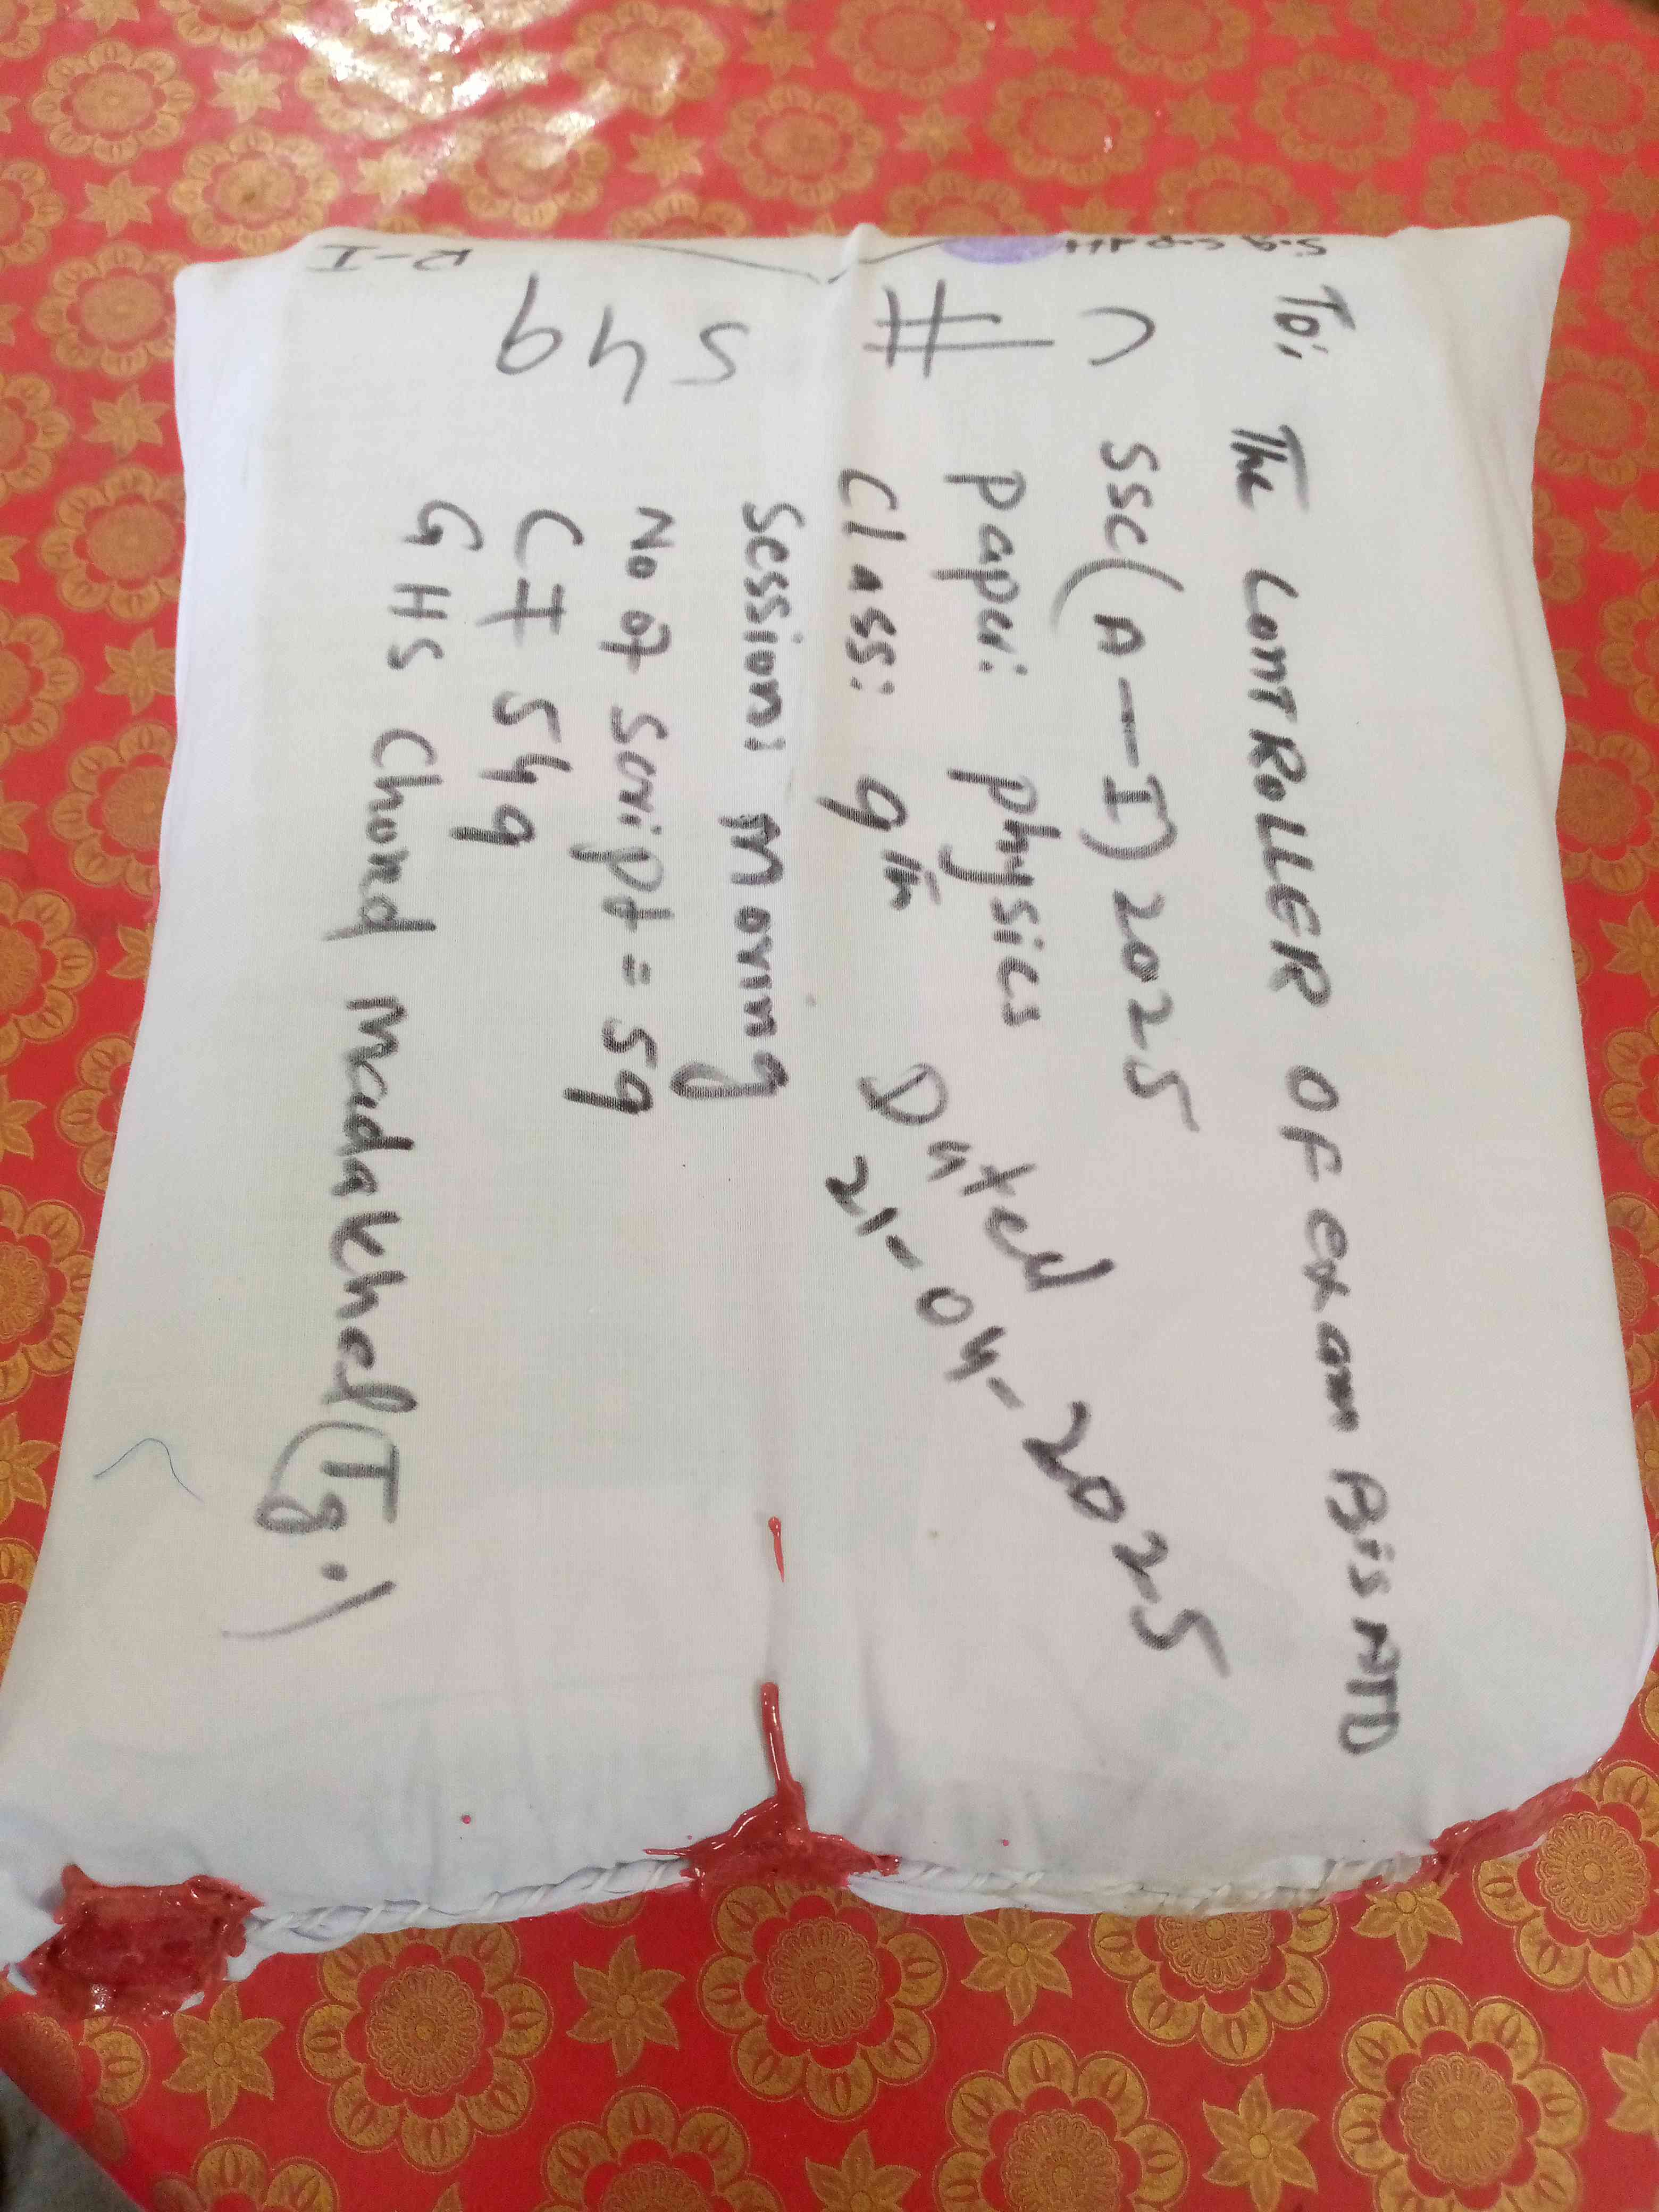 To: The CONTROLLER OF Exam BISE ATD
SSC(A-I) 2025
Paper: Physics
Class: 9th
Dated
21-04-2025
Session: Morning
No of Script = 59
C I 549
GHS Chond Madakhel (T8.)
C
#
549
R-I